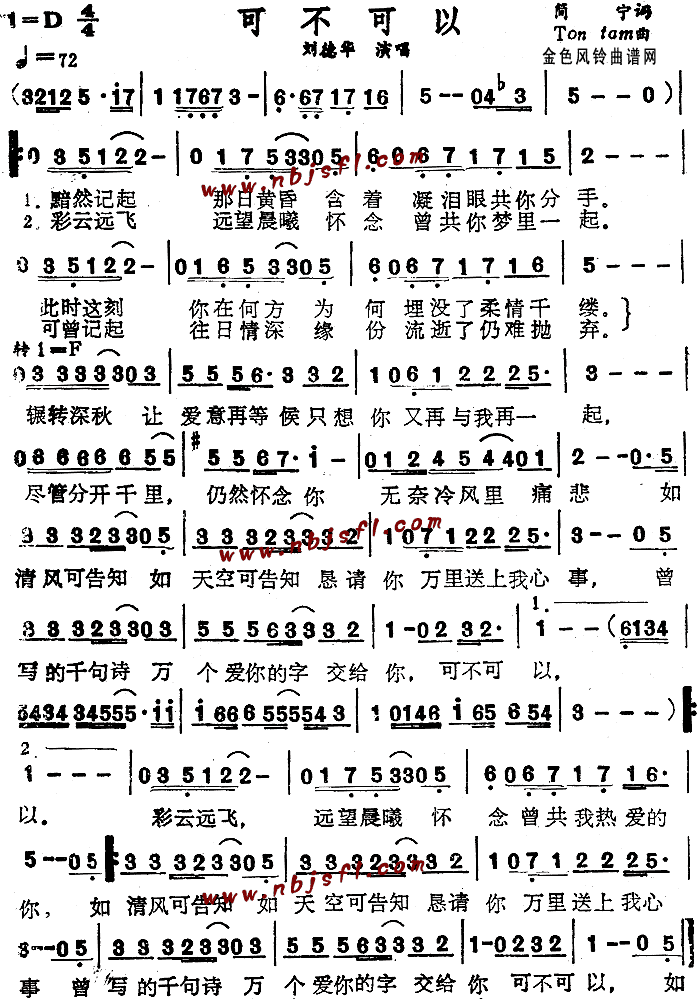 1=D 4/4 可不可以 简 宁 词
Ton tam 曲
♩=72 刘德华 演唱 金色风铃曲谱网
(3212 5 · i7 | 1 1767 3- | 6·67 1717 16 | 5--04 b3 | 5--0)
0 3 5122- | 0 1 7 53305 | 6 06 71 71 5 | 2---
www.nbjsfl.com
1.黯然记起 那日黄昏 含着 凝泪眼共你分手。
2.彩云远飞 远望晨曦 怀念 曾共你梦里一起。
0 3 5122- | 01 6 5 3305 | 606 71 71 6 | 5---
此时这刻 你在何方 为 何 埋没了柔情千 缕。
可曾记起 往日情深 缘 份 流逝了仍难抛 弃。
转1=F
03 333303 | 55 56·3 32 | 1061 2222· | 3---
辗转深秋 让 爱意再等候只想 你 又再与我再一 起,
06 666655 | #55 67·i- | 012 454401 | 2--0·5
尽管分开千里, 仍然怀念你 无奈冷风里 痛悲 如
33 323305 | 33 323332 | 107122 25· | 3--05
www.nbjsfl.com
清风可告知 如 天空可告知 恳请你 万里送上我心 事, 曾
33 323303 | 55 563332 | 1-02 32· | 1--(6134
1.
写的千句诗 万 个爱你的字 交给你, 可不可 以,
3434 34555·ii | i666 6555543 | 10146 i65 654 | 3---)
2.
1--- | 03 5122- | 017 53305 | 606 71716·
以。 彩云远飞, 远望晨曦 怀 念 曾共我热爱的
5--05 | 33 323305 | 33 323332 | 107122 25·
www.nbjsfl.com
你, 如 清风可告知 如 天空可告知 恳请你 万里送上我心
3--05 | 33 323303 | 55 563332 | 1-0232 | 1--05
事 曾 写的千句诗 万 个爱你的字 交给你 可不可以, 如